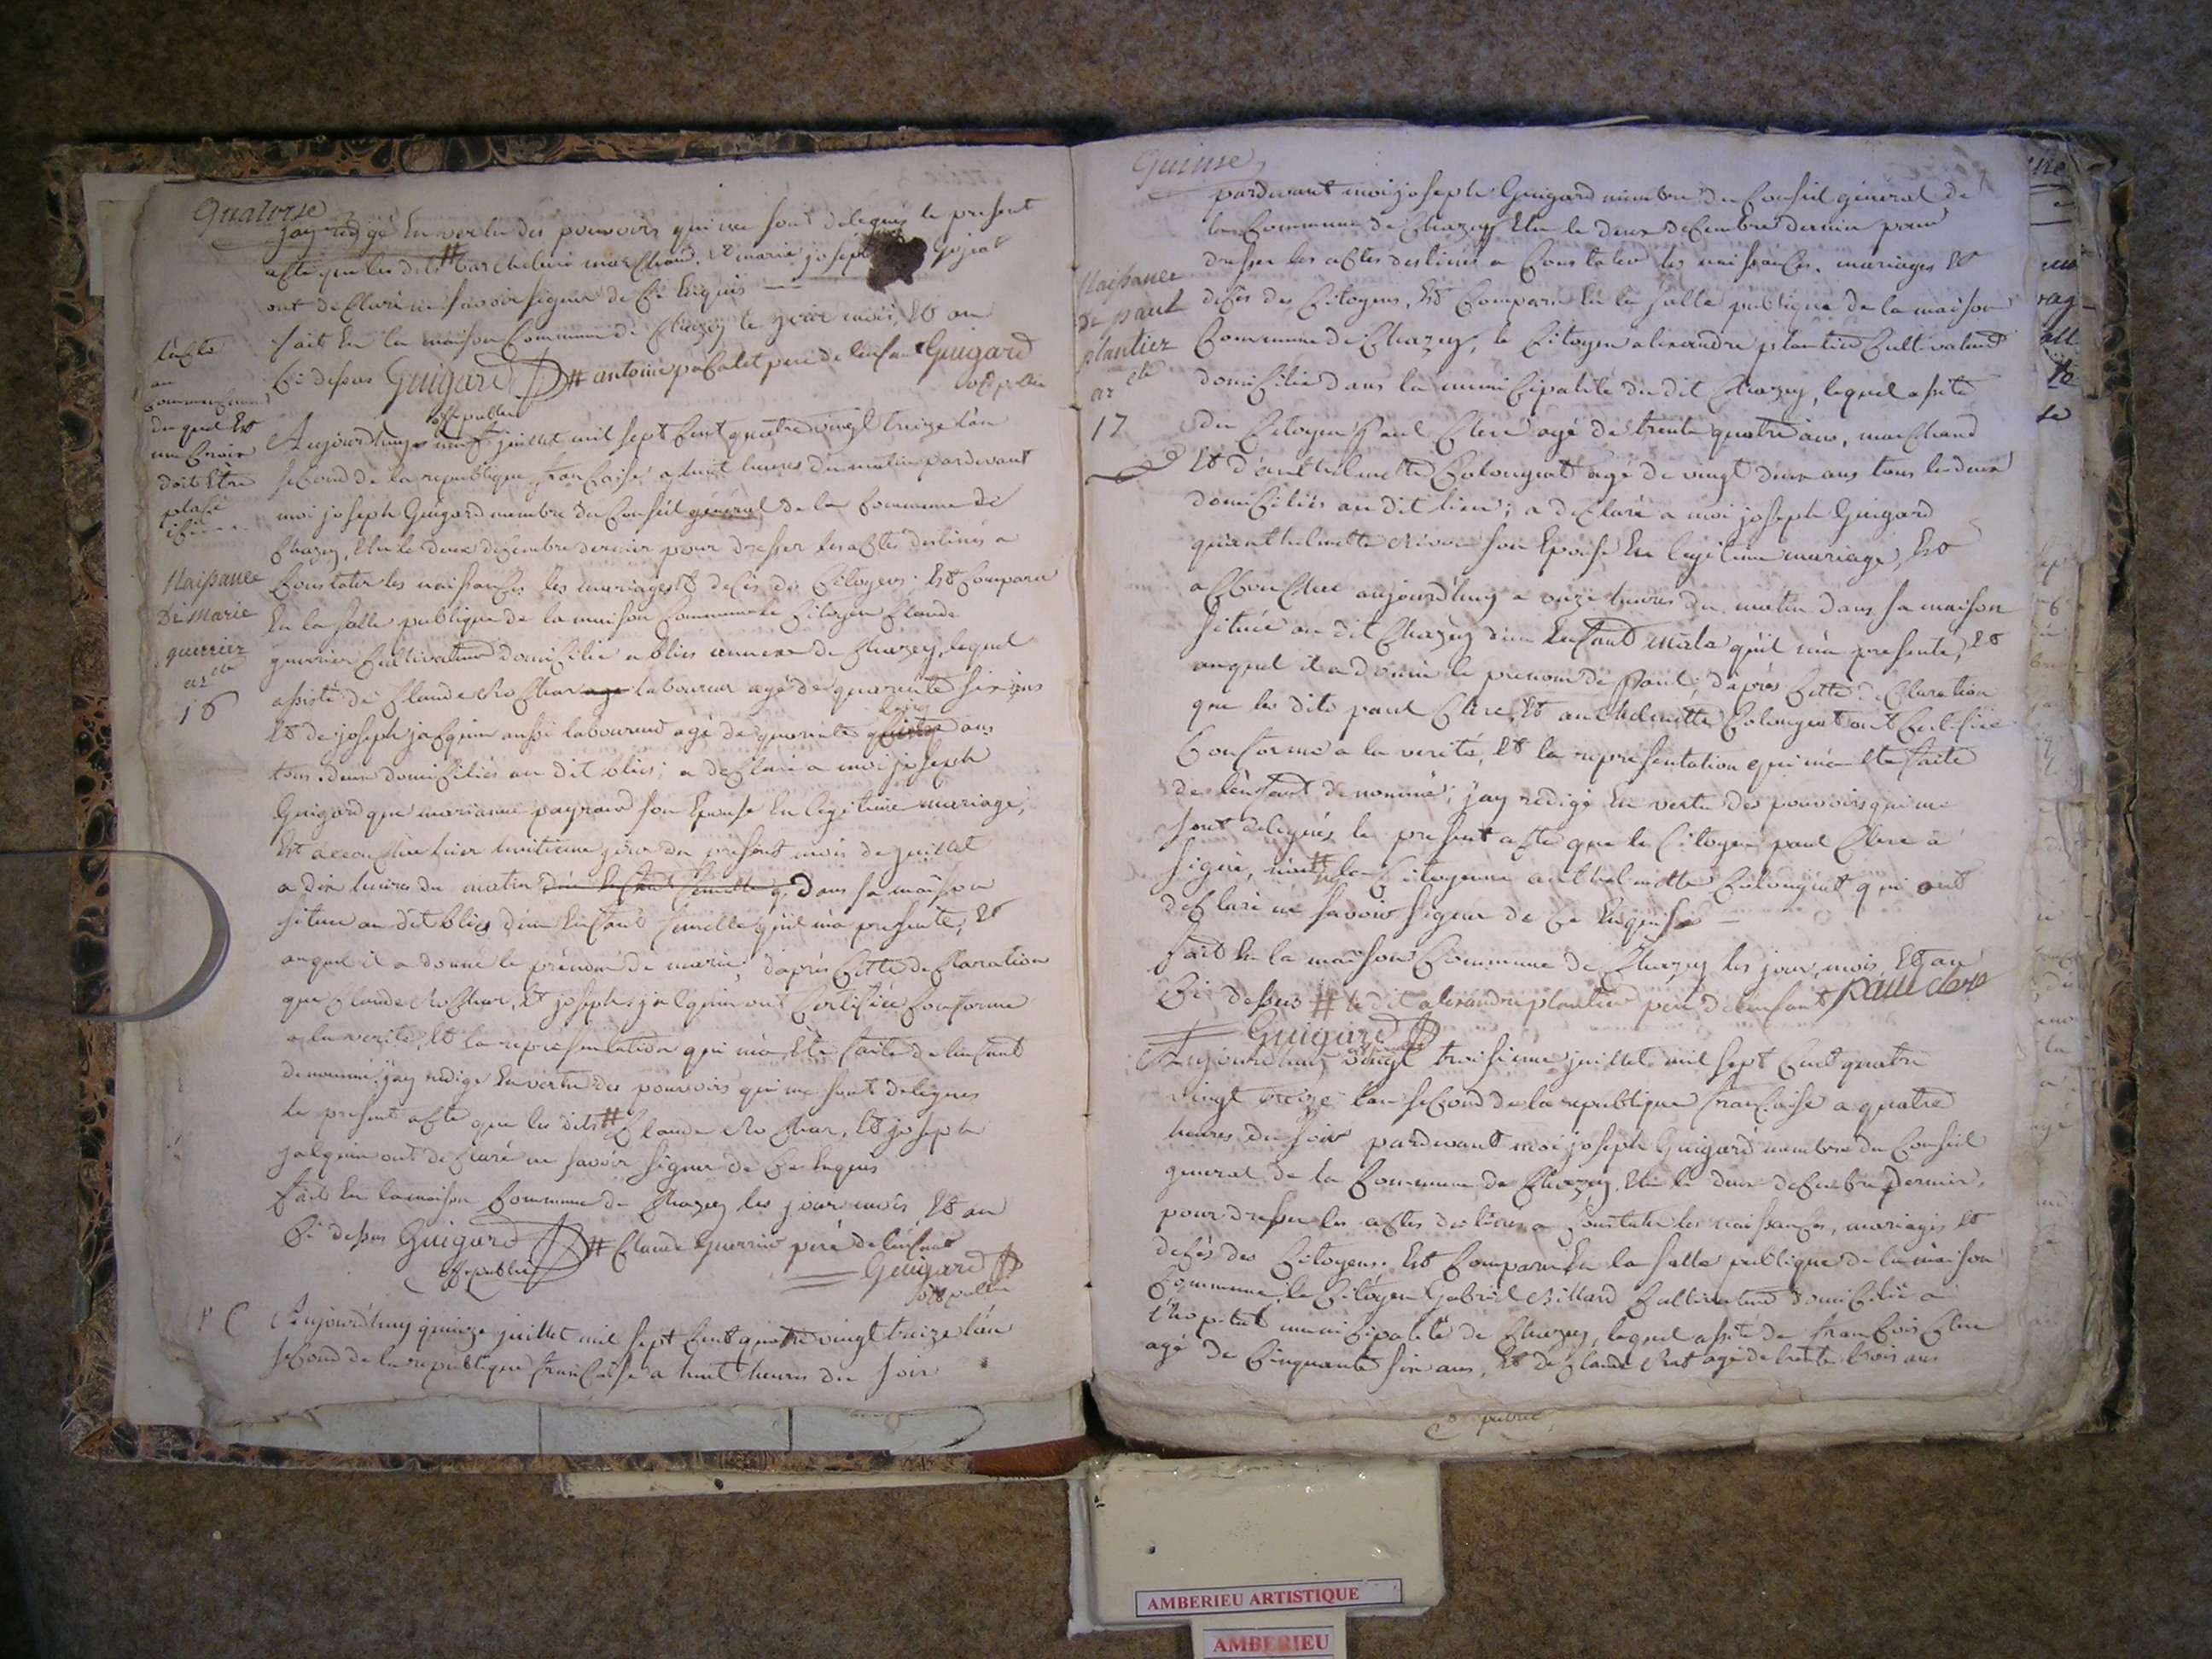 Quatorse
jay redigé En vertu des pouvoirs qui me sont delegués le present
acte que les dits # barthelemi marchand, Et marie joseph gojat
ont declaré ne savoir signer de ce Enquis
fait En la maison Commune de Chazey le jour mois, Et an
Ci dessus Guigard # antoine pasalet pere de lenfant Guigard
off public
off public
lacte
au
Commencement
du quel Est
une Croix
doit Etre
placé
ici
Aujourdhuy neuf juillet mil sept Cent quatre vingt treize l'an
second de la republique francaise a huit heures du matin pardevant
moi joseph Guigard membre du Conseil général de la Commune de
Chazey, Elu le deux decembre dernier pour dresser les actes destinés a
Constater les naissances les mariages Et décès des Citoyens; Est Comparu
En la salle publique de la maison Commune le Citoyen Claude
guerrier Cultivateur domicilié a blies annexe de Chazey, lequel
assisté de Claude Rochar age laboureur agé de quarante six ans
Et de joseph jacquin aussi laboureur agé de quarante ans
tous deux domiciliés au dit blies; a declaré a moi joseph
Guigard que marianne payraud son Epouse En legitime mariage,
Est accouchée hier huitieme jour du present mois de juillet
a dix heures du matin d'un Enfant femelle q dans sa maison
située au dit blies d'un Enfant femelle qu'il m'a presenté, Et
auquel il a donné le prénom de marie; d'aprés Cette declaration
que Claude Rochar, Et joseph jacquin ont Certifiée Conforme
a la verité, Et la representation qui m'a Eté faite de lenfant
denommé; jay redigé En vertu des pouvoirs qui me sont delegués
le present acte que les dits # Claude Rochar, Et joseph
jacquin ont declaré ne savoir signer de Ce Enquis
fait En la maison Commune de Chazey les jour mois Et an
Ci dessus Guigard # Claude Guerrier pere de lenfant
off public
Guigard
off public
Naissance
De Marie
guerrier
16
Aujourdhuy quinze juillet mil sept Cent quatre vingt treize l'an
second de la republique francaise a huit heures du soir
Quinse
pardevant moi joseph Guigard membre du Conseil général de
la Commune de Chazey Elu le deux decembre dernier pour
dresser les actes destinés a Constater les naissances, mariages Et
décès des Citoyens, Est Comparu En la salle publique de la maison
Commune de Chazey, le Citoyen alexandre plantier Cultivateur
domicilié dans la municipalité du dit Chazey, lequel assisté
du Citoyen Paul Clerc agé de trente quatre ans, marchand
Et d'anthelmette Colongeat agé de vingt deux ans tous les deux
domiciliés au dit lieu; a declaré a moi joseph Guigard
qu'anthelmette son Epouse En legitime mariage, Est
accouchée aujourd'huy a onze heures du matin dans sa maison
située au dit Chazey d'un Enfant male qu'il m'a presenté, Et
auquel il a donné le prenom de Paul; d'aprés Cette declaration
que les dits paul Clerc, Et anthelmette Colongeat ont Certifiée
Conforme a la verité, Et la representation qui m'a Eté faite
de l'enfant denommé; jay redigé En vertu des pouvoirs qui me
sont delegués le present acte que le Citoyen paul Clerc a
signé, # la Citoyenne anthelmette Colongeat qui ont
declaré ne savoir signer de Ce Enquis
fait En la maison Commune de Chazey les jour, mois Et an
Ci dessus # le dit alexandre plantier pere de lenfant paul clerc
Guigard
Naissance
De paul
plantier
17
Aujourdhuy vingt troisieme juillet mil sept Cent quatre
vingt treize l'an second de la republique francaise a quatre
heures du soir pardevant moi joseph Guigard membre du Conseil
general de la Commune de Chazey, Elu le deux decembre dernier,
pour dresser les actes destinés a Constater les naissances, mariages Et
décès des Citoyens. Est Comparu En la salle publique de la maison
Commune, le Citoyen Gabriel Billard Cultivateur domicilié a
l'hopital municipalité de Chazey, lequel assisté de francois Clerc
agé de Cinquante six ans, Et de Claude agé de trente trois ans
public
AMBERIEU ARTISTIQUE
AMBERIEU